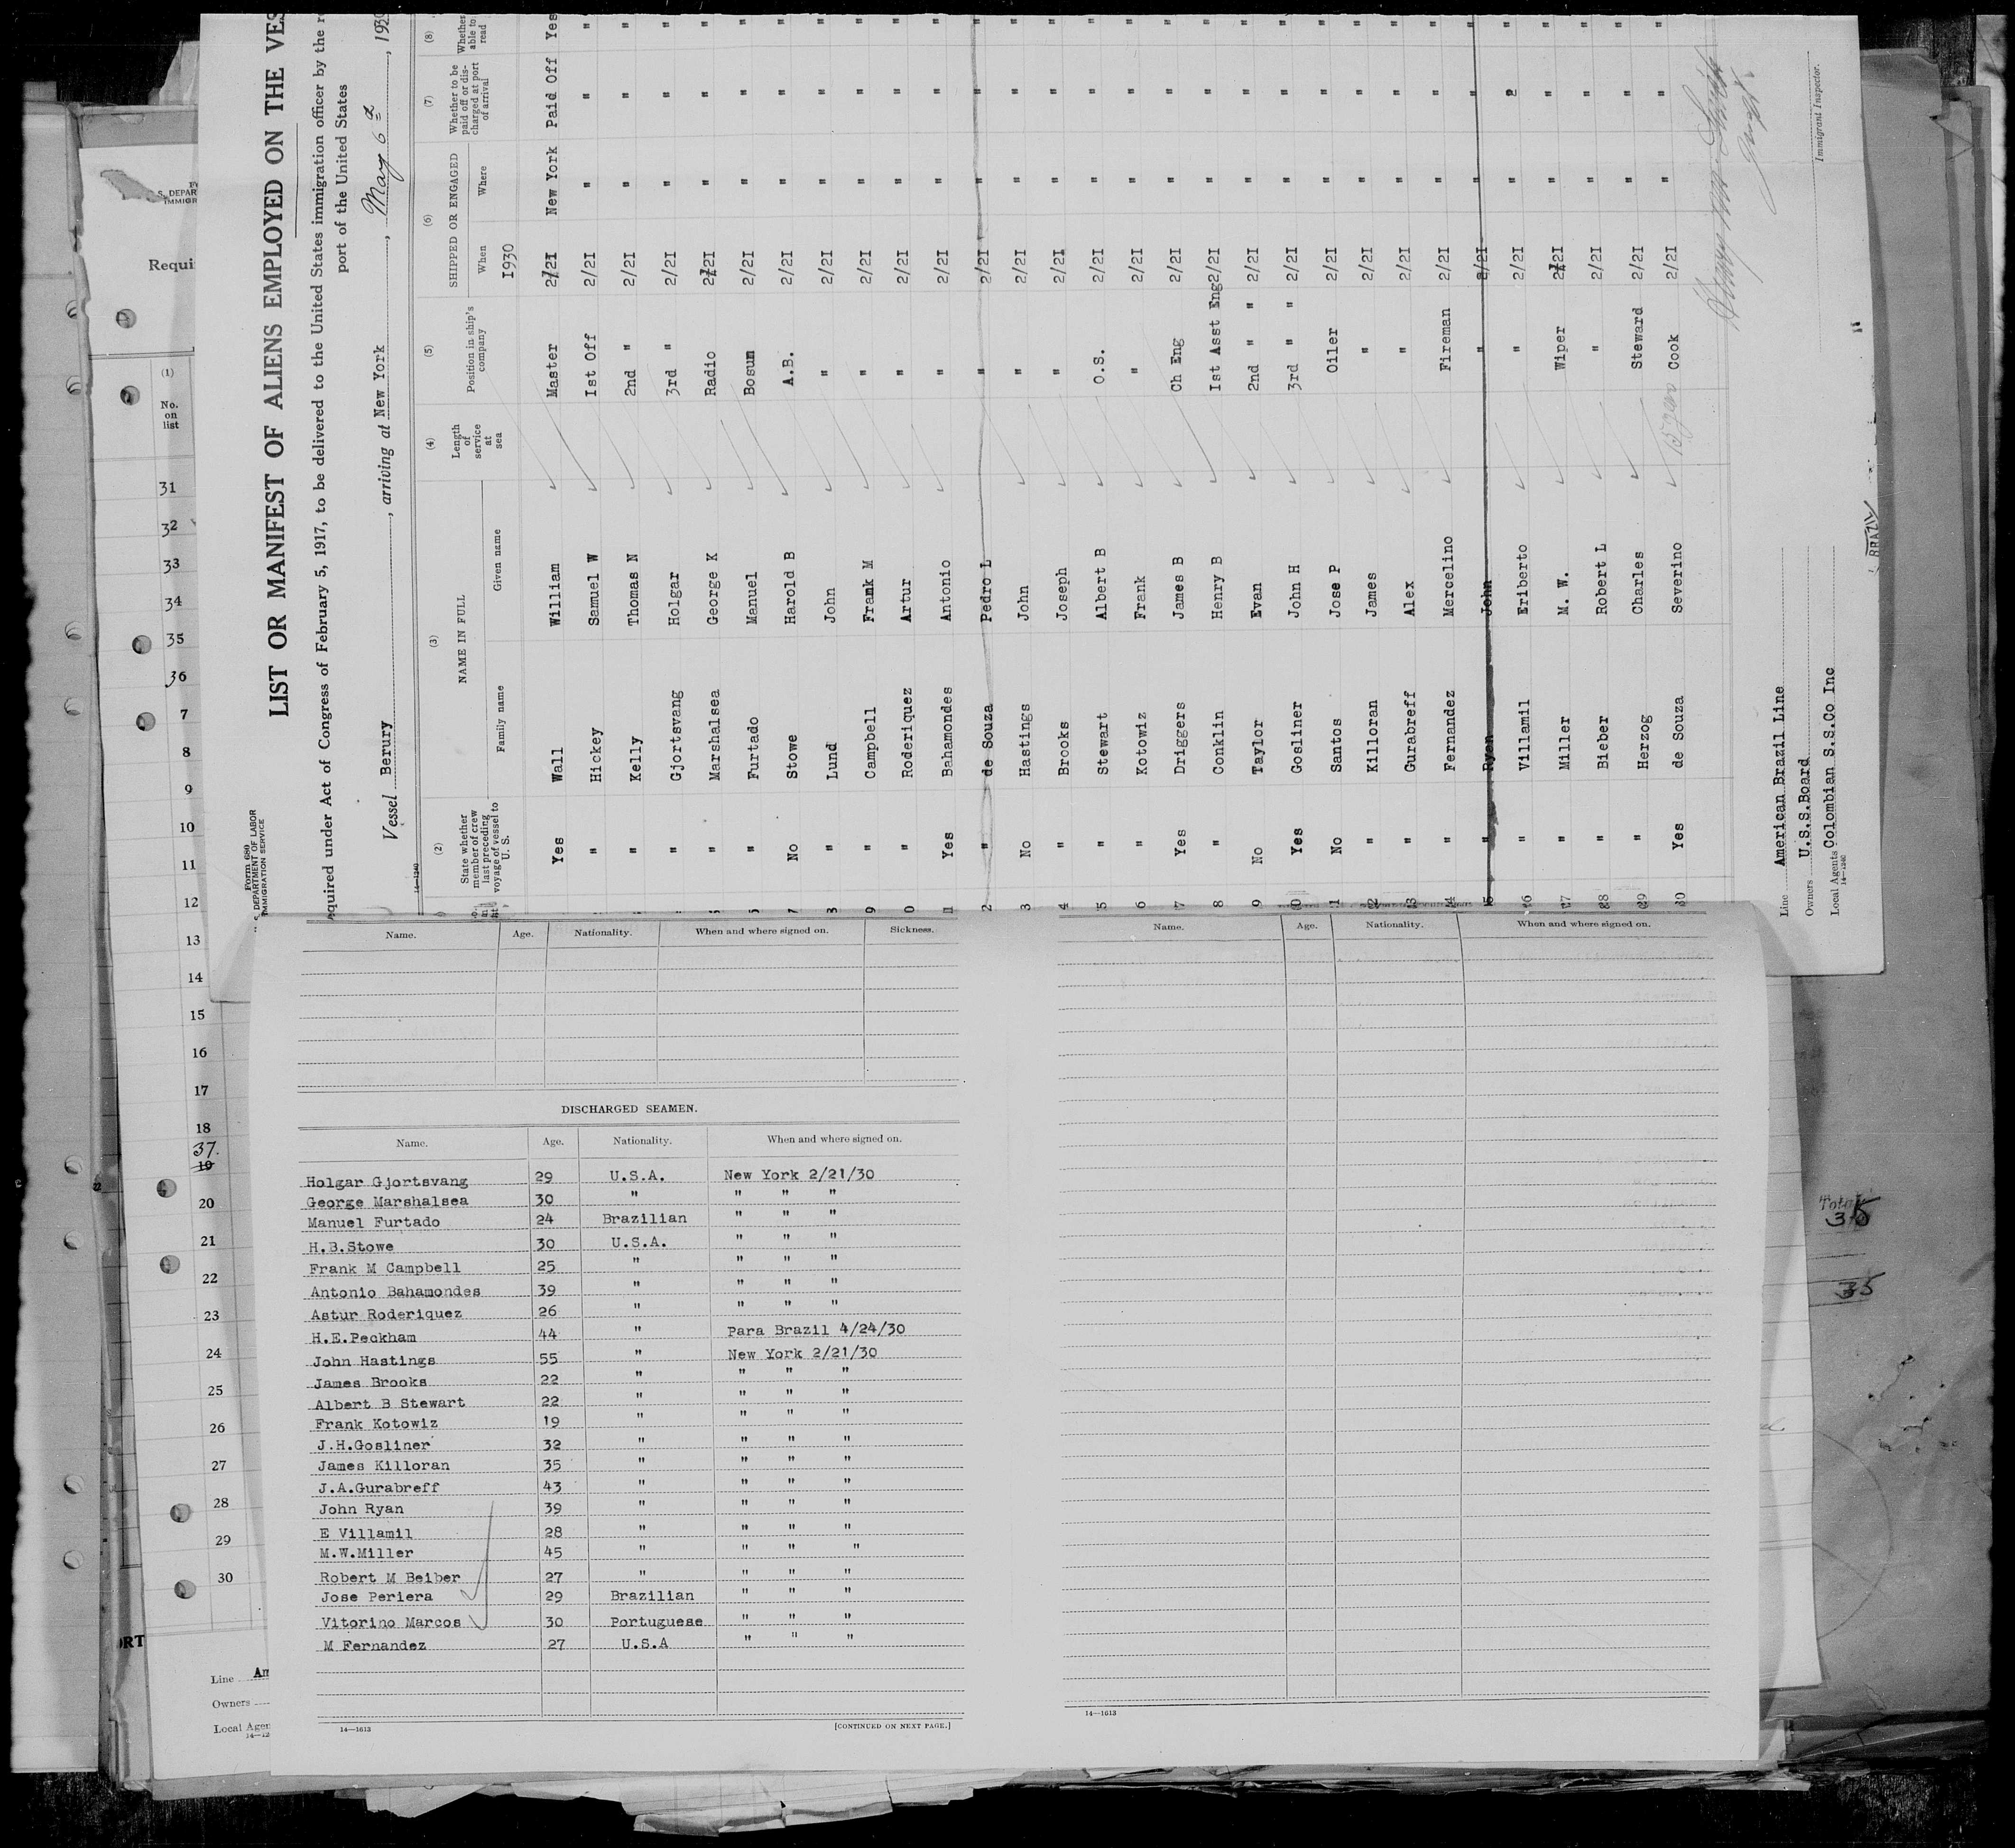 Form 680
U. S. DEPARTMENT OF LABOR
IMMIGRATION SERVICE
LIST OR MANIFEST OF ALIENS EMPLOYED ON THE VES
equired under Act of Congress of February 5, 1917, to be delivered to the United States immigration officer by the r
port of the United States
Vessel Berury, arriving at New York, May 6th, 1930
14—1240
(2) (3) (4) (5) (6) (7) (8)
State whether member of crew last preceding voyage of vessel to U. S.
NAME IN FULL
Family name Given name
Length of service at sea
Position in ship's company
SHIPPED OR ENGAGED
When Where
Whether to be paid off or discharged at port of arrival
Whether able to read
1930
Yes Wall William Master 2/21 New York Paid Off Yes
" Hickey Samuel W Ist Off 2/21 " " "
" Kelly Thomas N 2nd " 2/21 " " "
" Gjortsvang Holgar 3rd " 2/21 " " "
" Marshalsea George K Radio 2/21 " " "
" Furtado Manuel Bosun 2/21 " " "
No Stowe Harold B A.B. 2/21 " " "
" Lund John " 2/21 " " "
9 " Campbell Frank M " 2/21 " " "
0 " Roderiquez Artur " 2/21 " " "
11 Yes Bahamondes Antonio " 2/21 " " "
2 " de Souza Pedro L " 2/21 " " "
3 No Hastings John " 2/21 " " "
4 " Brooks Joseph " 2/21 " " "
5 " Stewart Albert B O.S. 2/21 " " "
6 " Kotowiz Frank " 2/21 " " "
7 Yes Driggers James B Ch Eng 2/21 " " "
8 " Conklin Henry B Ist Asst Eng 2/21 " " "
9 No Taylor Evan 2nd " " 2/21 " " "
20 Yes Gosliner John H 3rd " " 2/21 " " "
21 No Santos Jose P Oiler 2/21 " " "
22 " Killoran James " 2/21 " " "
23 " Gurabreff Alex " 2/21 " " "
24 " Fernandez Mercelino Fireman 2/21 " " "
25 " Ryan John " 2/21 " " "
26 " Villamil Eriberto " 2/21 " " "
27 " Miller M. W. Wiper 2/21 " " "
28 " Bieber Robert L " 2/21 " " "
29 " Herzog Charles Steward 2/21 " " "
30 Yes de Souza Severino Cook 2/21 " " "
Immigrant Inspector.
Line American Brazil Line
Owners U.S.S.Board
Local Agents Colombian S.S.Co Inc
14—1240
BRAZIL
S. DEPAR
IMMIGR
Requi
(1)
No. on list
31
32
33
34
35
36
7
8
9
10
11
12
13
14
15
16
17
18
37.
19
20
21
22
23
24
25
26
27
28
29
30
ORT
Line Am
Owners
Local Agen
14—12
Name. Age. Nationality. When and where signed on. Sickness.
DISCHARGED SEAMEN.
Name. Age. Nationality. When and where signed on.
Holgar Gjortsvang 29 U.S.A. New York 2/21/30
George Marshalsea 30 " " " "
Manuel Furtado 24 Brazilian " " "
H.B.Stowe 30 U.S.A. " " "
Frank M Campbell 25 " " " "
Antonio Bahamondes 39 " " " "
Astur Roderiquez 26 " " " "
H.E.Peckham 44 " Para Brazil 4/24/30
John Hastings 55 " New York 2/21/30
James Brooks 22 " " " "
Albert B Stewart 22 " " " "
Frank Kotowiz 19 " " " "
J.H.Gosliner 32 " " " "
James Killoran 35 " " " "
J.A.Gurabreff 43 " " " "
John Ryan 39 " " " "
E Villamil 28 " " " "
M.W.Miller 45 " " " "
Robert M Beiber 27 " " " "
Jose Periera 29 Brazilian " " "
Vitorino Marcos 30 Portuguese " " "
M Fernandez 27 U.S.A " " "
14—1613 [CONTINUED ON NEXT PAGE.]
Name. Age. Nationality. When and where signed on.
14—1613
Total
35